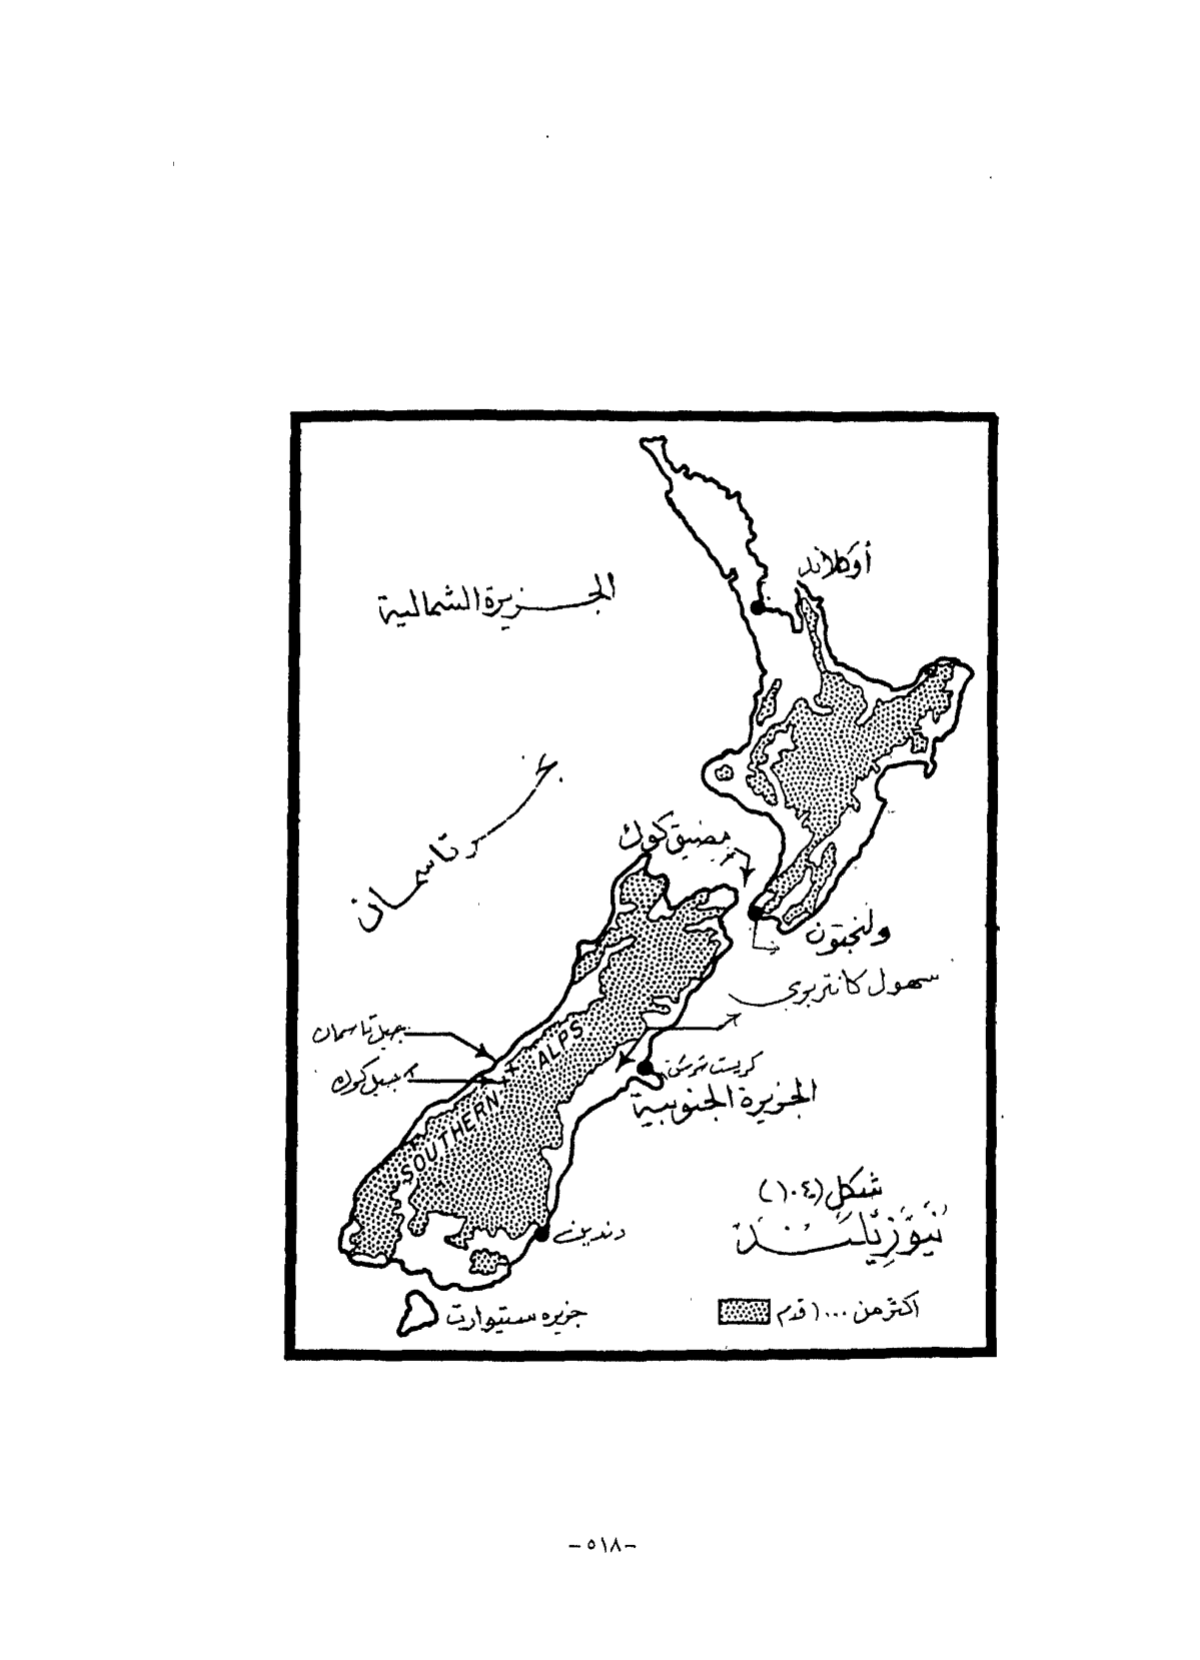 أوكلاند
الجزيرة الشمالية
بحر تاسمان
مضيق كوك
ولنجتون
سهول كانتربوري
جبل تاسمان
جبل كوك
SOUTHERN ALPS
كريست تشرش
الجزيرة الجنوبية
شكل (١٠٤)
نيوزيلند
دندين
جزيره ستيوارت
اكثر من ١٠٠٠ قدم
-٥١٨-